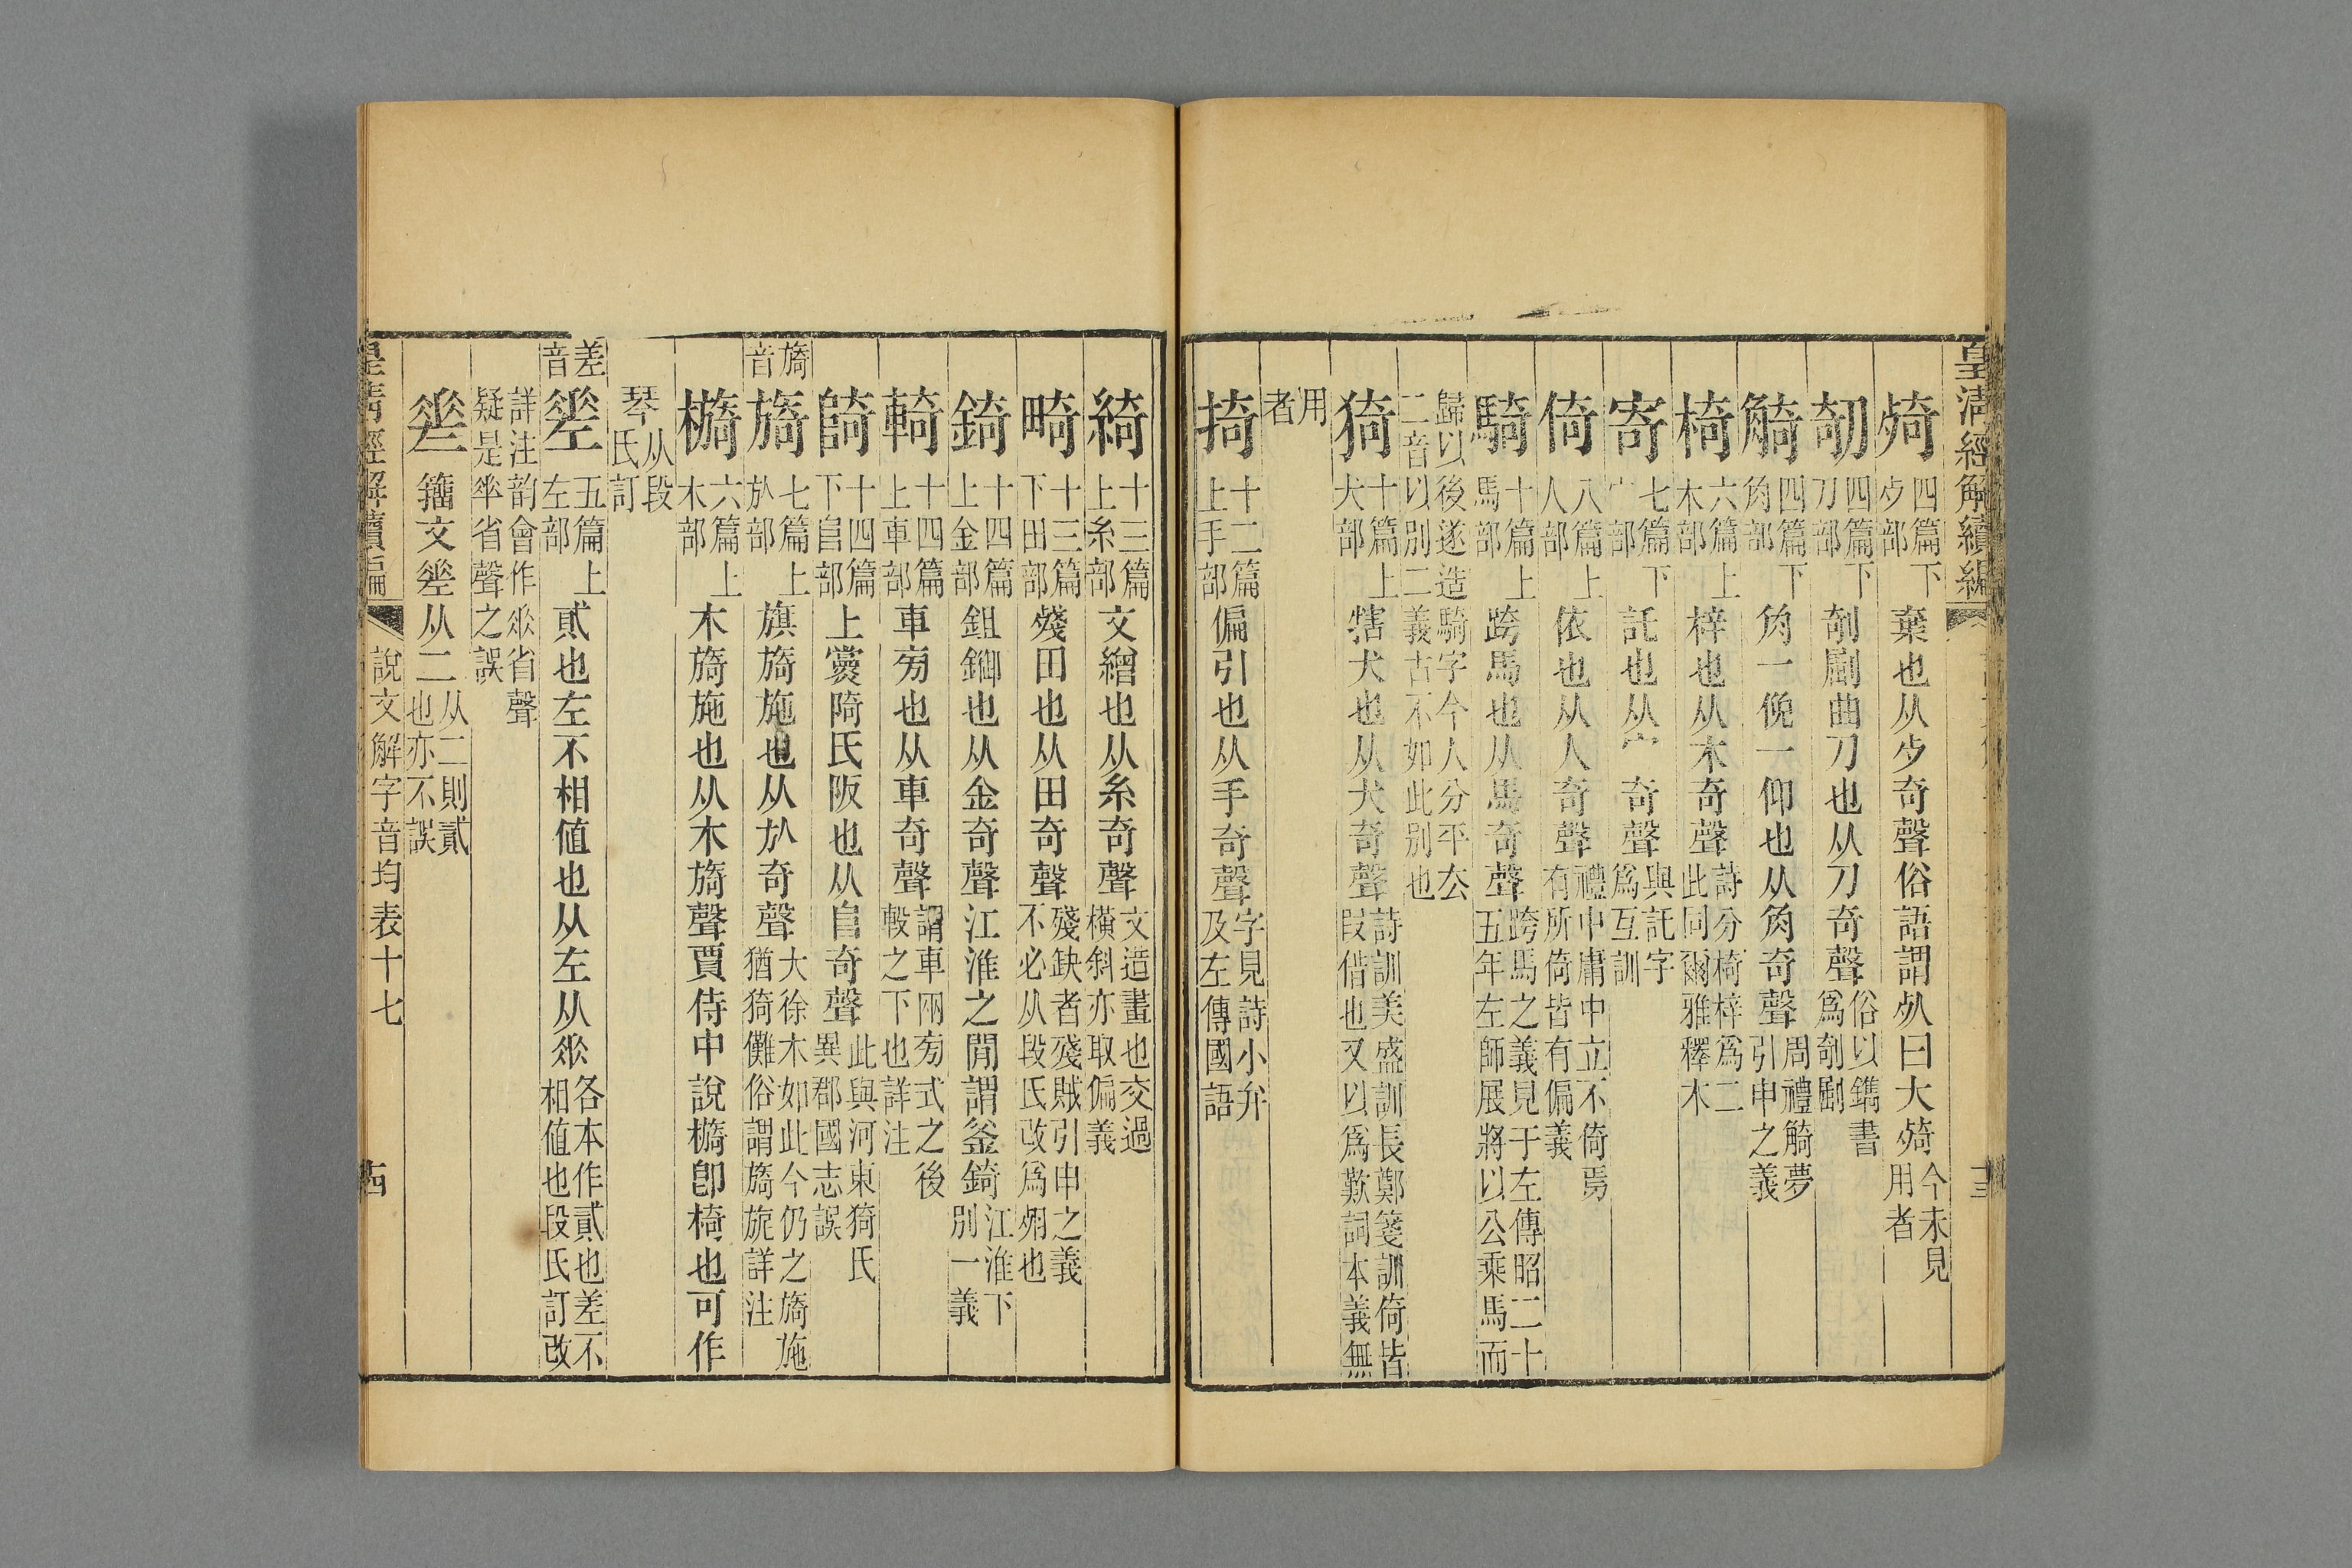 皇清經解續編
㱦四篇下歺部棄也从歺奇聲俗語謂𣦸曰大㱦今未見用者
剞四篇下刀部剞劂曲刀也从刀奇聲俗以鐫書爲剞劂
觭四篇下角部角一俛一仰也从角奇聲周禮觭夢引申之義
椅六篇上木部梓也从木奇聲詩分椅梓爲二此同爾雅釋木
寄七篇下宀部託也从宀奇聲與託字爲互訓
倚八篇上人部依也从人奇聲禮中庸中立不倚焉有所倚皆有偏義
騎十篇上馬部跨馬也从馬奇聲跨馬之義見于左傳昭二十五年左師展將以公乘馬而
歸以後遂造騎字今人分平厺二音以別二義古不如此別也
猗十篇上犬部犗犬也从犬奇聲詩訓美盛訓長鄭箋訓倚皆叚借也又以爲歎詞本義無
用者
掎十二篇上手部偏引也从手奇聲字見詩小弁及左傳國語
綺十三篇上糸部文繒也从糸奇聲文造畫也交過橫斜亦取偏義
畸十三篇下田部殘田也从田奇聲殘缺者殘賊引申之義不必从段氏改爲𣧻也
錡十四篇上金部鉏鋤也从金奇聲江淮之閒謂釜錡江淮下別一義
輢十四篇上車部車㫄也从車奇聲謂車兩㫄式之後較之下也詳注
陭十四篇下𨸏部上黨陭氏阪也从𨸏奇聲此與河東猗氏異郡國志誤
旖音旖七篇上㫃部旗旖施也从㫃奇聲大徐木如此今仍之旖施猶猗儺俗謂旖旎詳注
檹六篇上木部木旖施也从木旖聲賈侍中說檹卽椅也可作
琴从段氏訂
差音𢀩五篇上左部貳也左不相値也从左从𠂹各本作貳也差不相値也段氏訂改
詳注韵會作𠂹省聲疑是𠦒省聲之誤
𢀩籒文𢀩从二从二則貳也亦不誤
皇清經解續編 說文解字音均表十七 十四